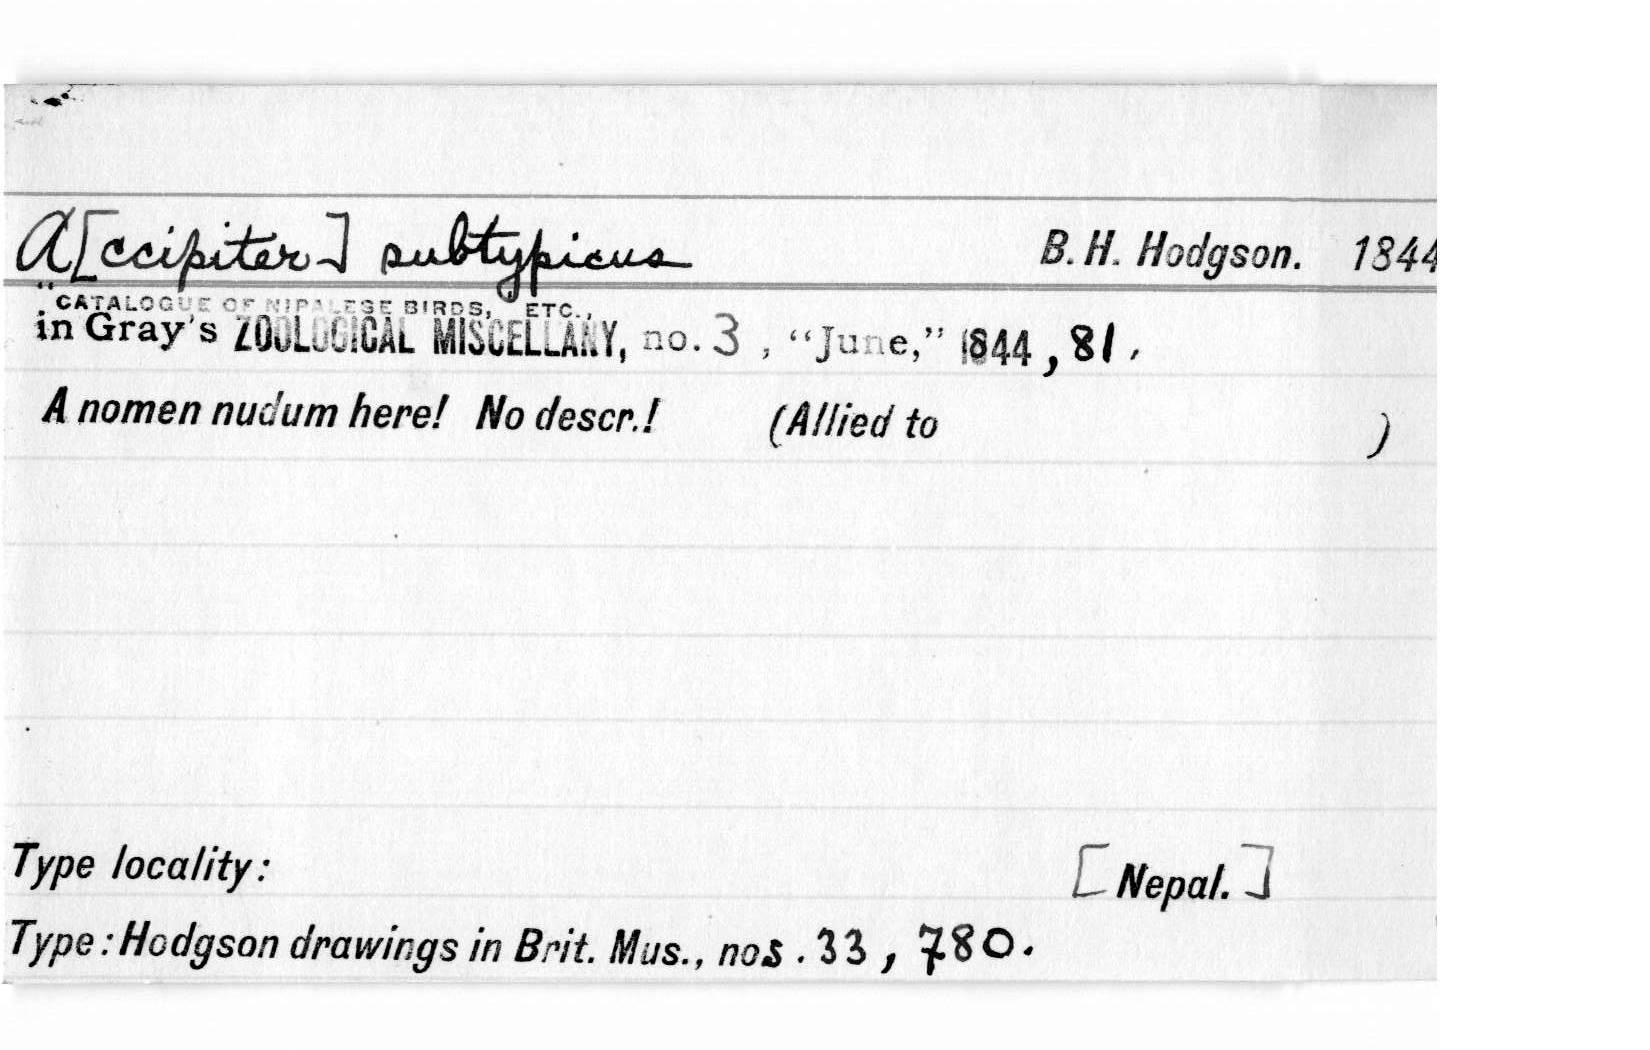 A[ccipiter] subtypicus B. H. Hodgson. 1844
"CATALOGUE OF NIPALESE BIRDS, ETC.,
in Gray's ZOOLOGICAL MISCELLANY, no. 3, "June," 1844, 81.
A nomen nudum here! No descr.! (Allied to )
Type locality: [Nepal.]
Type: Hodgson drawings in Brit. Mus., nos. 33, 780.